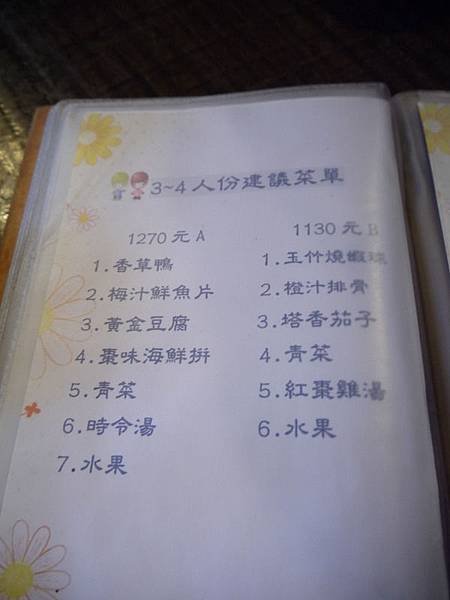 3~4人份建議菜單
1270元 A
1.香草鴨
2.梅汁鮮魚片
3.黃金豆腐
4.棗味海鮮拼
5.青菜
6.時令湯
7.水果
1130元 B
1.玉竹燒蝦球
2.橙汁排骨
3.塔香茄子
4.青菜
5.紅棗雞湯
6.水果